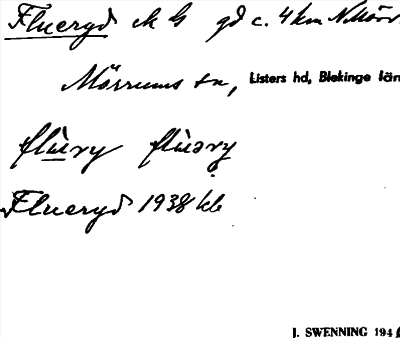 Flueryd M G gd c. 4 km N Mörr
Mörrums sn, Listers hd, Blekinge län
flùry flùəry
Flueryd 1938 kb
J. SWENNING 194